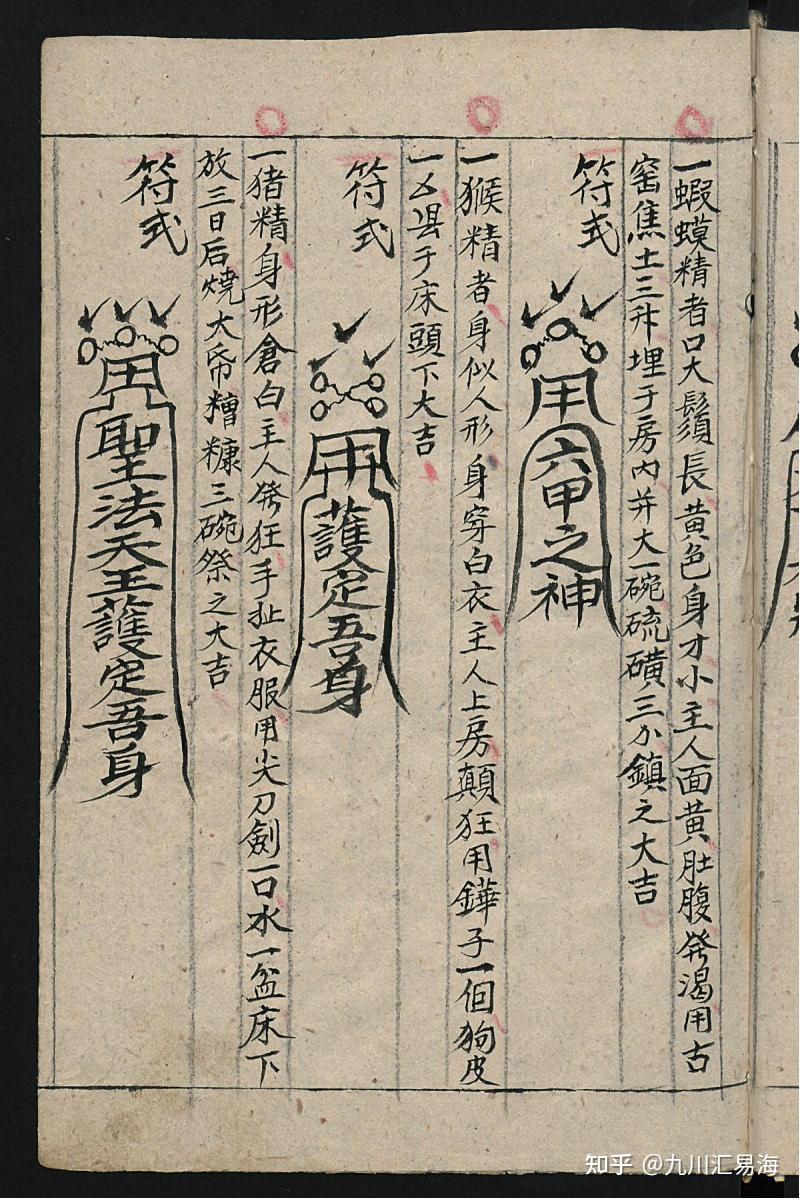 一蝦蟆精者口大鬚長黄色身才小主人面黄肚腹發渴用古
窑焦土三升埋于房内并大一碗硫磺三分鎮之大吉
符式
用六甲之神
一猴精者身似人形身穿白衣主人上房顛狂用鏵子一個狗皮
一 县于床頭下大吉
符式
用護定吾身
一猪精身形倉白主人發狂手扯衣服用尖刀劍一口水一盆床下
放三日后燒大帋糟糠三碗祭之大吉
符式
用聖法天王護定吾身
知乎 @九川汇易海